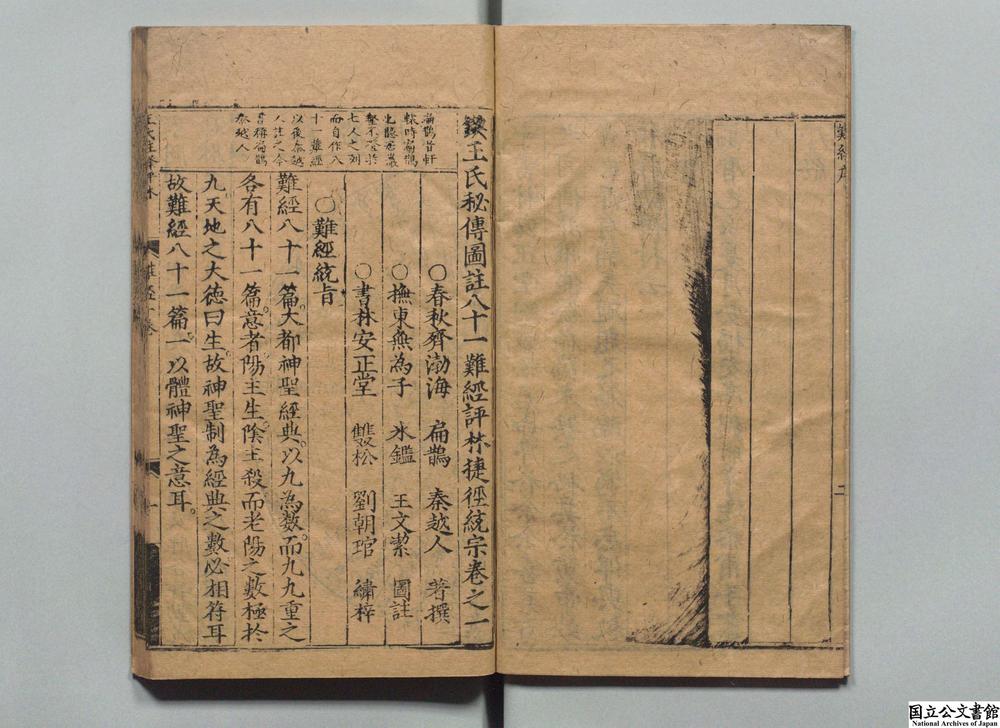 難經序
二
鍥王氏秘傳圖註八十一難經評林捷徑統宗卷之一
○春秋齊渤海 扁鵲 秦越人 著撰
○撫東無為子 氷鑑 王文潔 圖註
○書林安正堂 雙松 劉朝琯 繡梓
扁鵲昔軒
轅時扁鵲
也隱居巖
壑不登於
七人之列
而自作八
十一難經
以後秦越
人註之今
書稱扁鵲
秦越人
○難經統旨
難經八十一篇。大都神聖經典。以九為數。而九九重之
各有八十一篇。意者陽主生。陰主殺。而老陽之數極於
九。天地之大德曰生。故神聖制為經典之數。必相符耳
故難經八十一篇。一以體神聖之意耳。
難經一卷
一
国立公文書館
National Archives of Japan